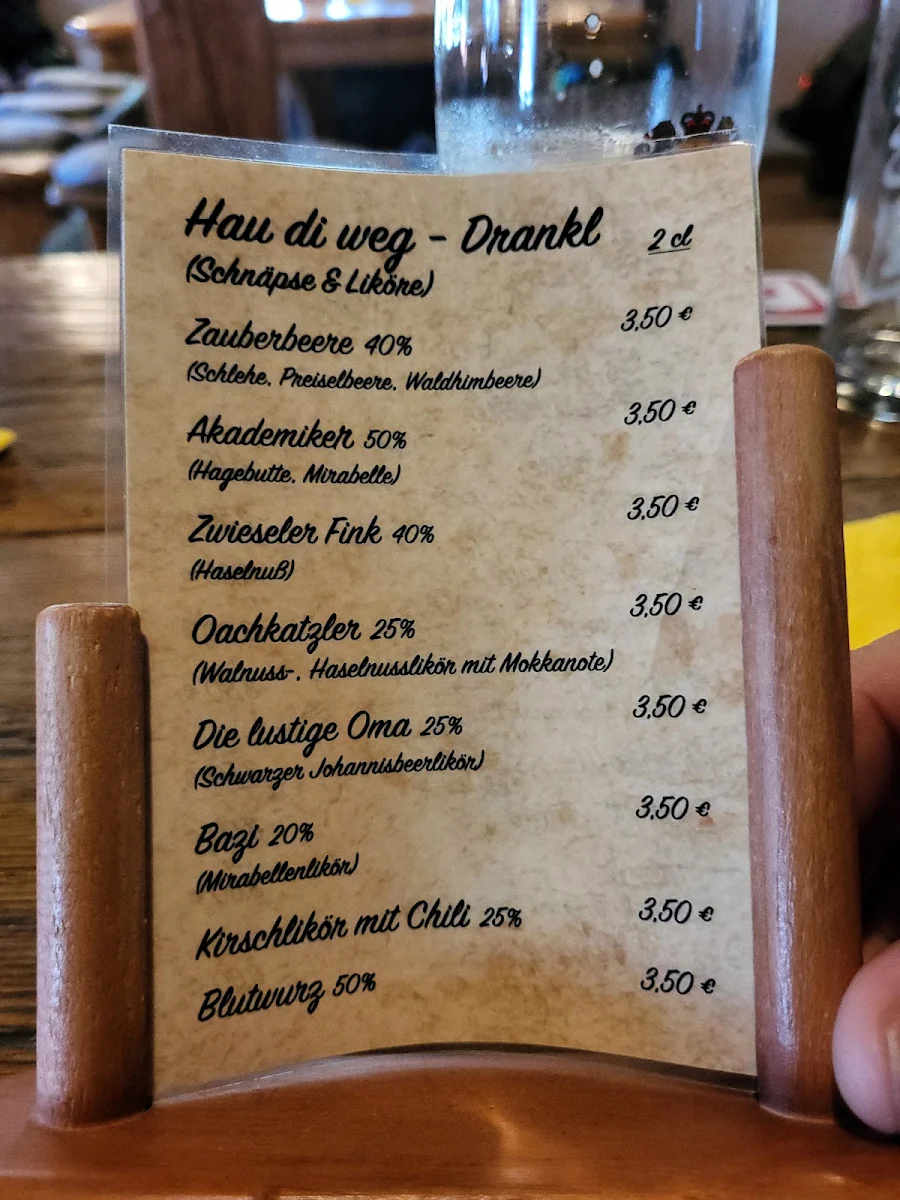 Hau di weg - Drankl 2 cl
(Schnäpse & Liköre)
Zauberbeere 40% 3,50 €
(Schlehe, Preiselbeere, Waldhimbeere)
Akademiker 50% 3,50 €
(Hagebutte, Mirabelle)
Zwieseler Fink 40% 3,50 €
(Haselnuß)
Oachkatzler 25% 3,50 €
(Walnuss-, Haselnusslikör mit Mokkanote)
Die lustige Oma 25% 3,50 €
(Schwarzer Johannisbeerlikör)
Bazi 20% 3,50 €
(Mirabellenlikör)
Kirschlikör mit Chili 25% 3,50 €
Blutwurz 50% 3,50 €